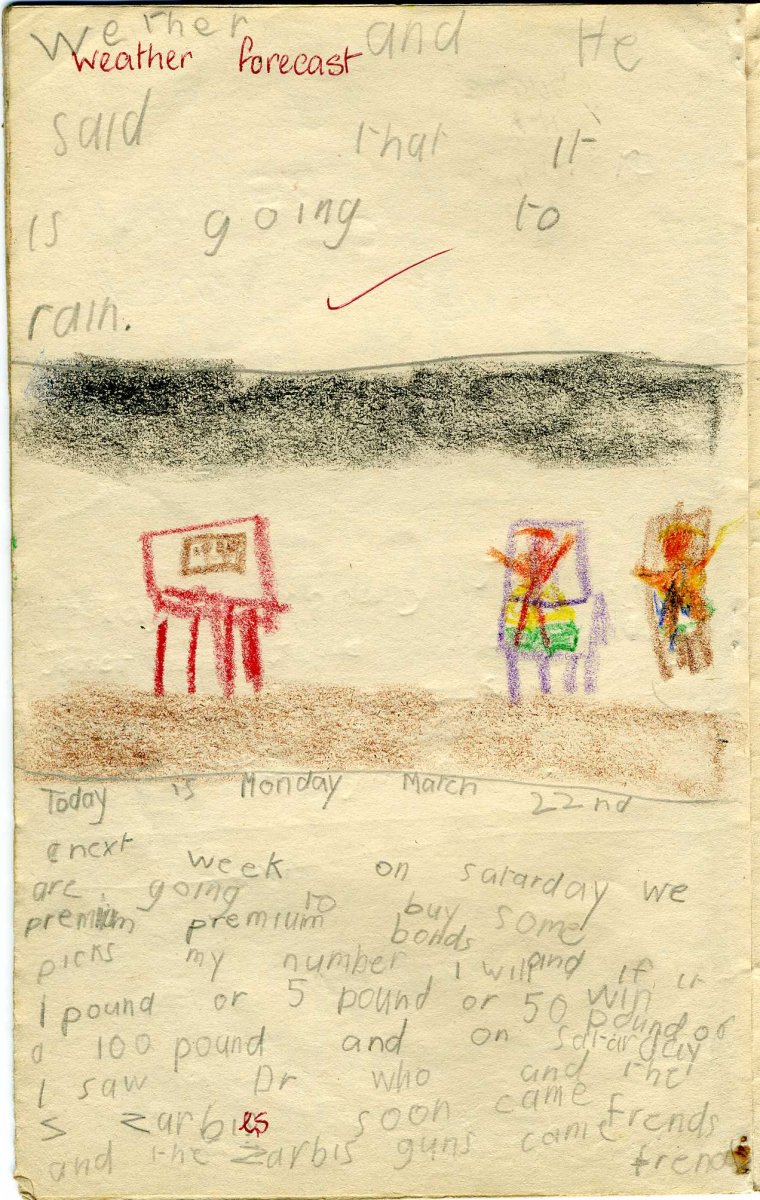 Wether and He
weather forecast
said that it
is going to
rain.
Today is Monday March 22nd
next week on satarday we
are going to buy some
premium premium bonds and if it
picks my number I will win
1 pound or 5 pound or 50 pound or
a 100 pound and on satarday
I saw Dr who and the
s zarbies soon came frends
and the zarbis guns came frends